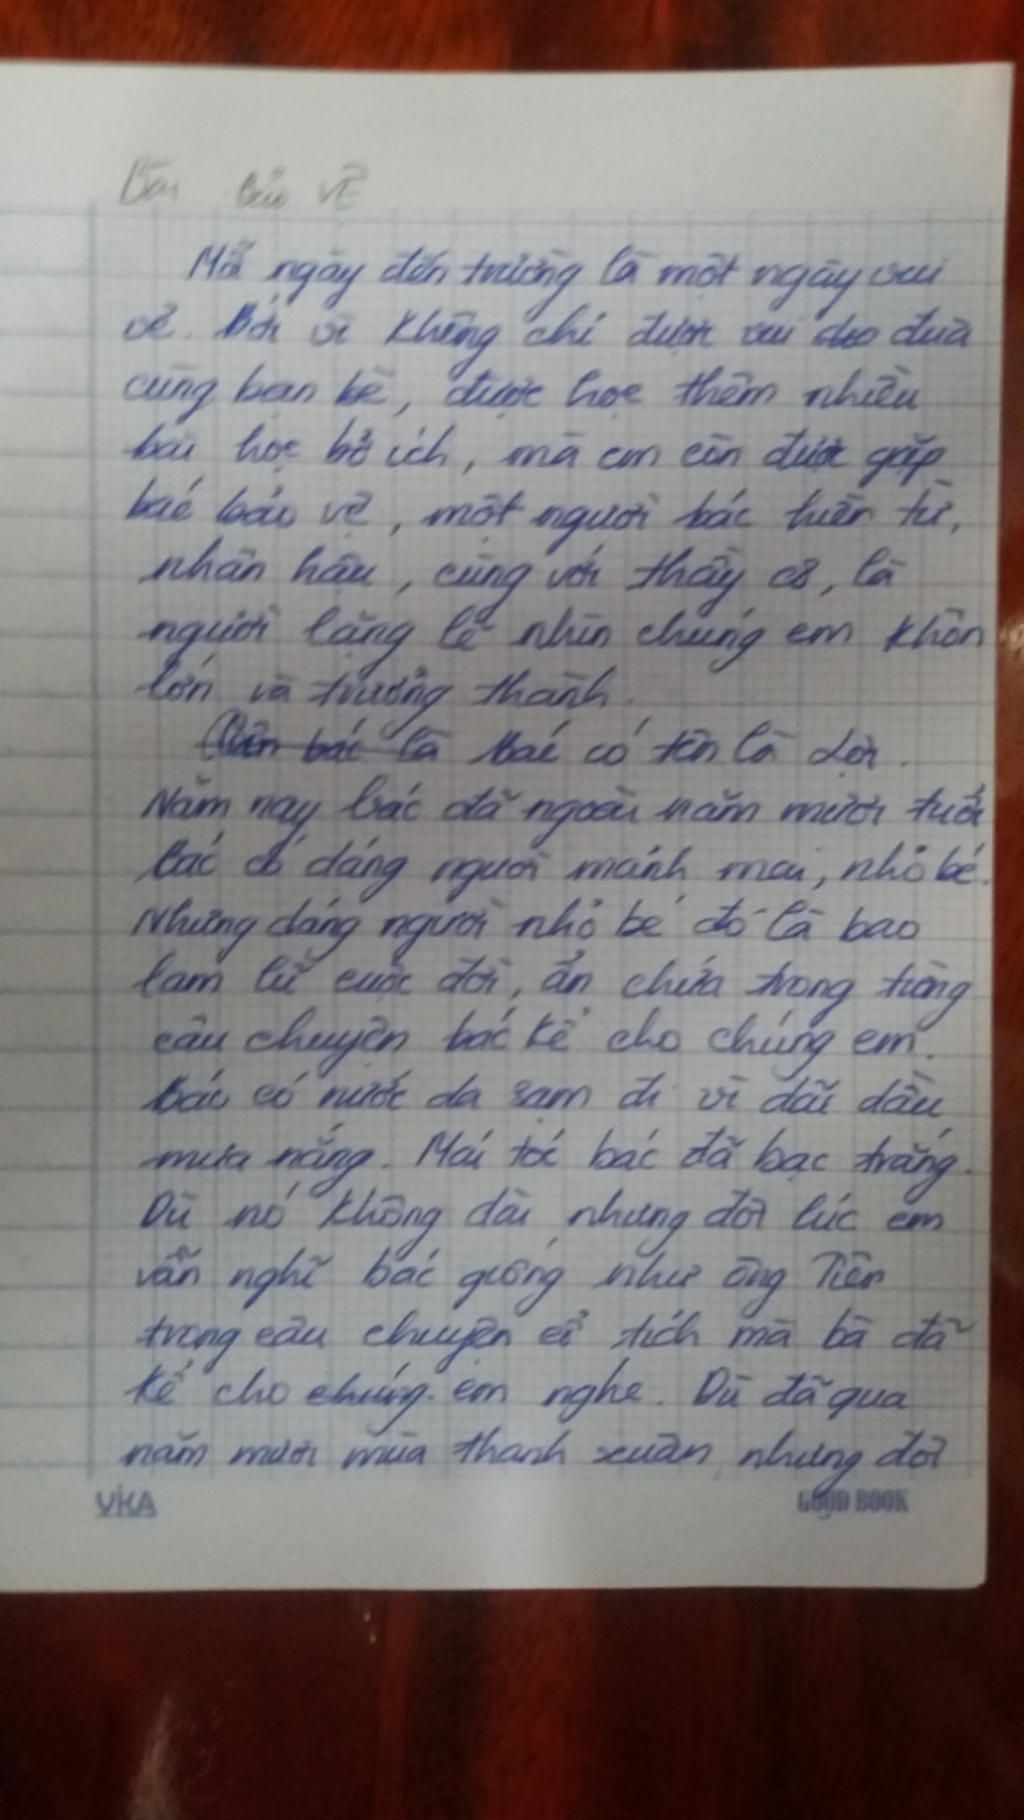 Bác bảo vệ
Mỗi ngày đến trường là một ngày vui
vẻ. Bởi vì không chỉ được vui đùa
cùng bạn bè, được học thêm nhiều
bài học bổ ích, mà em còn được gặp
bác bảo vệ, một người bác hiền từ,
nhân hậu, cùng với thầy cô, là
người lặng lẽ nhìn chúng em khôn
lớn và trưởng thành.
Bác có tên là Lợi.
Năm nay bác đã ngoài năm mươi tuổi
bác có dáng người mảnh mai, nhỏ bé.
Nhưng dáng người nhỏ bé đó là bao
lam lũ cuộc đời, ẩn chứa trong từng
câu chuyện bác kể cho chúng em.
Bác có nước da sạm đi vì dãi dầu
mưa nắng. Mái tóc bác đã bạc trắng.
Dù nó không dài nhưng đôi lúc em
vẫn nghĩ bác giống như ông Tiên
trong câu chuyện cổ tích mà bà đã
kể cho chúng em nghe. Dù đã qua
năm mươi mùa thanh xuân nhưng đôi
VKA
GOOD BOOK